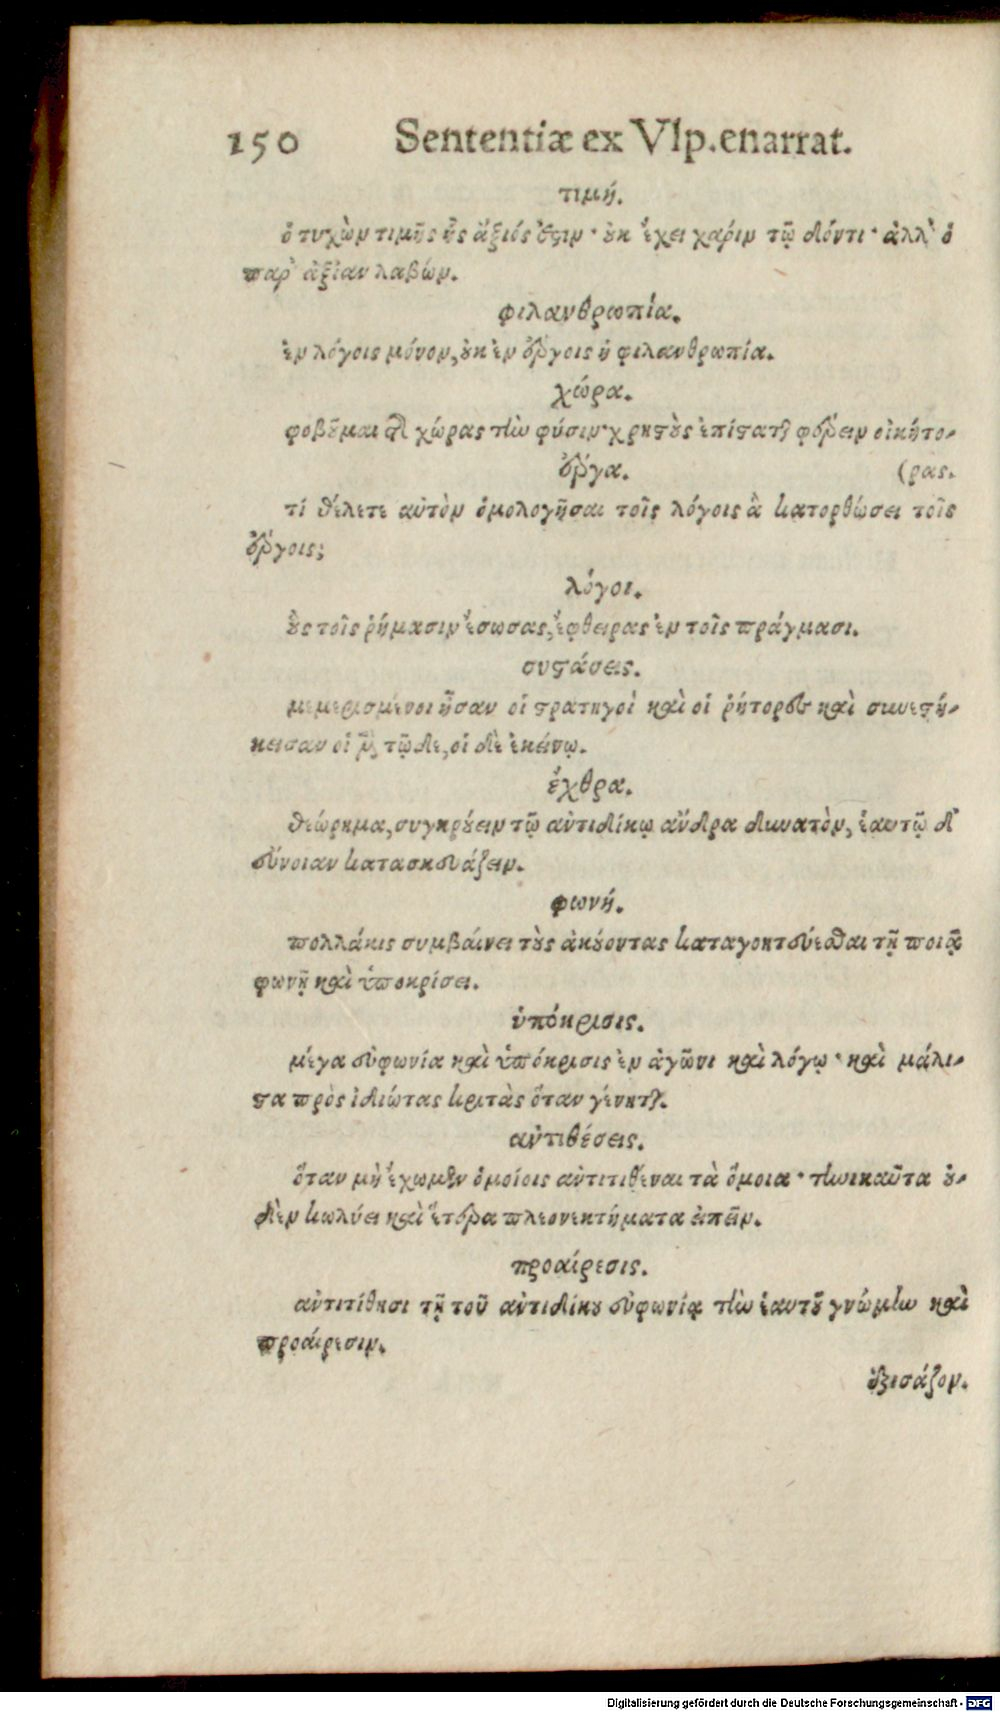 150 Sententiæ ex Vlp. enarrat.
τιμή.
ὁ τυχὼν τιμῆς ἧς ἄξιός ἐστιν· οὐκ ἔχει χάριν τῷ δόντι· ἀλλ' ὁ
παρ' ἀξίαν λαβών.
φιλανθρωπία.
ἐν λόγοις μόνον, οὐκ ἐν ἔργοις ἡ φιλανθρωπία.
χώρα.
φοβοῦμαι τῆς χώρας τὴν φύσιν· χρηστοὺς ἐπίσταται φέρειν οἰκήτο-
ἔργα. (ρας.
τί θέλετε αὐτὸν ὁμολογῆσαι τοῖς λόγοις ἃ κατορθώσει τοῖς
ἔργοις;
λόγοι.
οὓς τοῖς ῥήμασιν ἔσωσας, ἔφθειρας ἐν τοῖς πράγμασι.
συστάσεις.
μεμερισμένοι ἦσαν οἱ στρατηγοὶ καὶ οἱ ῥήτορες καὶ συνεστή-
κεισαν οἱ μὲν τῷδε, οἱ δὲ ἐκείνῳ.
ἔχθρα.
θεώρημα, συγκρούειν τῷ ἀντιδίκῳ ἄνδρα δυνατὸν, ἑαυτῷ δ'
εὔνοιαν κατασκευάζειν.
φωνή.
πολλάκις συμβαίνει τοὺς ἀκούοντας καταγοητεύεσθαι τῇ ποιᾷ
φωνῇ καὶ ὑποκρίσει.
ὑπόκρισις.
μέγα εὐφωνία καὶ ὑπόκρισις ἐν ἀγῶνι καὶ λόγῳ· καὶ μάλι-
στα πρὸς ἰδιώτας κριτὰς ὅταν γίνηται.
ἀντιθέσεις.
ὅταν μὴ ἔχωμεν ὁμοίοις ἀντιτιθέναι τὰ ὅμοια· τηνικαῦτα οὐ-
δὲν κωλύει καὶ ἕτερα πλεονεκτήματα εἰπεῖν.
προαίρεσις.
ἀντιτίθησι τῇ τοῦ ἀντιδίκου εὐφωνίᾳ τὴν ἑαυτοῦ γνώμην καὶ
προαίρεσιν.
Digitalisierung gefördert durch die Deutsche Forschungsgemeinschaft - DFG